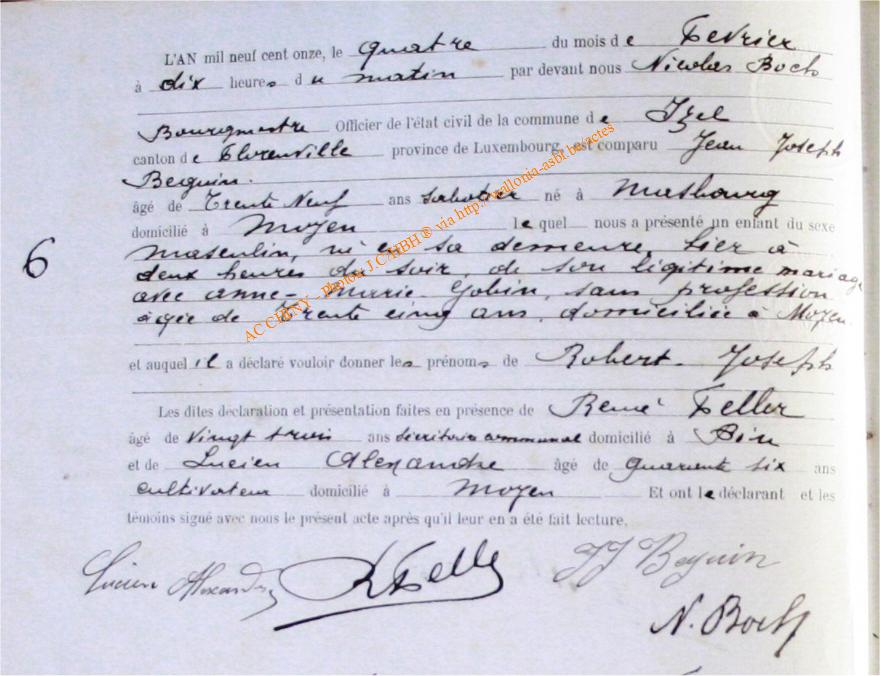 L'AN mil neuf cent onze, le quatre du mois de Fevrier
à dix heures du matin par devant nous Nicolas Boch
Bourgmestre Officier de l'état civil de la commune de Izel
canton de Florenville province de Luxembourg, est comparu Jean Joseph
Beguin.
âgé de Trente Neuf ans Sabotier né à Masbourg
domicilié à Moyen lequel nous a présenté un enfant du sexe
masculin, né en sa demeure, hier à
deux heures du soir, de son légitime mariage
avec anne-Marie Gobin, sans profession
âgée de Trente cinq ans, domiciliée à Moyen.
6
et auquel il a déclaré vouloir donner les prénoms de Robert-Joseph
Les dites déclaration et présentation faites en présence de René Feller
âgé de Vingt trois ans Sécrétaire communal domicilié à
et de Lucien Alexandre âgé de quarante six ans
cultivateur domicilié à Moyen Et ont le déclarant et les
témoins signé avec nous le présent acte après qu'il leur en a été fait lecture,
Lucien Alexandre RFeller JJ Beguin
N. Boch
ACCHBNY - Photos J.C.HBH ® via http://wallonia-asbl.be/actes